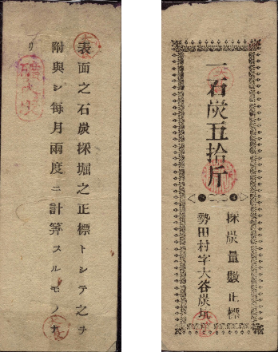 一石炭五拾斤
採炭量數正標
勢田村字大谷炭坑
表面之石炭採堀之正標トシテ之ヲ
附與シ毎月兩度ニ計算スルモノナ
リ